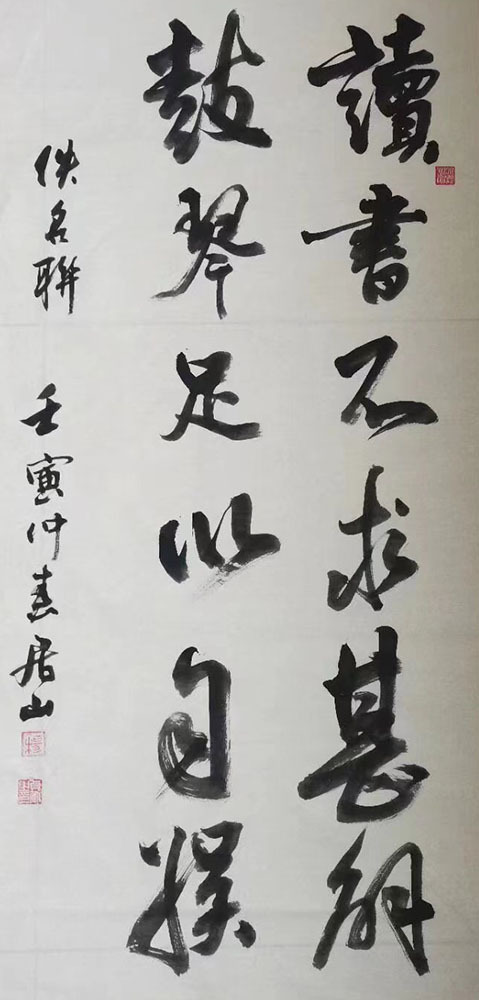 讀書不求甚解
鼓琴足以自娛
佚名聯 壬寅仲春居山